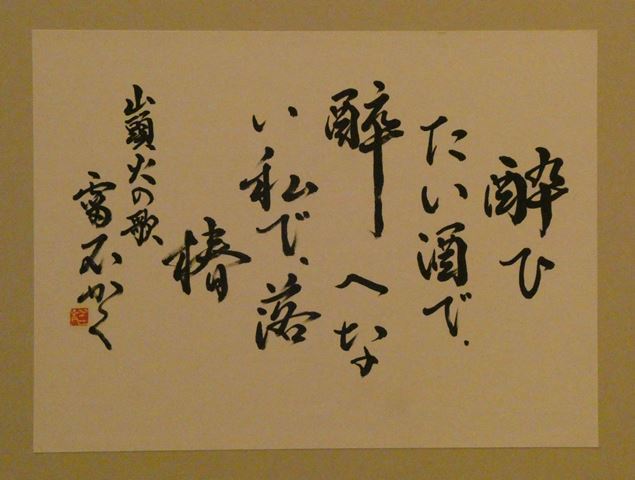 酔ひ
たい酒で、
酔へな
い私で、落
椿
山頭火の歌
雷石かく